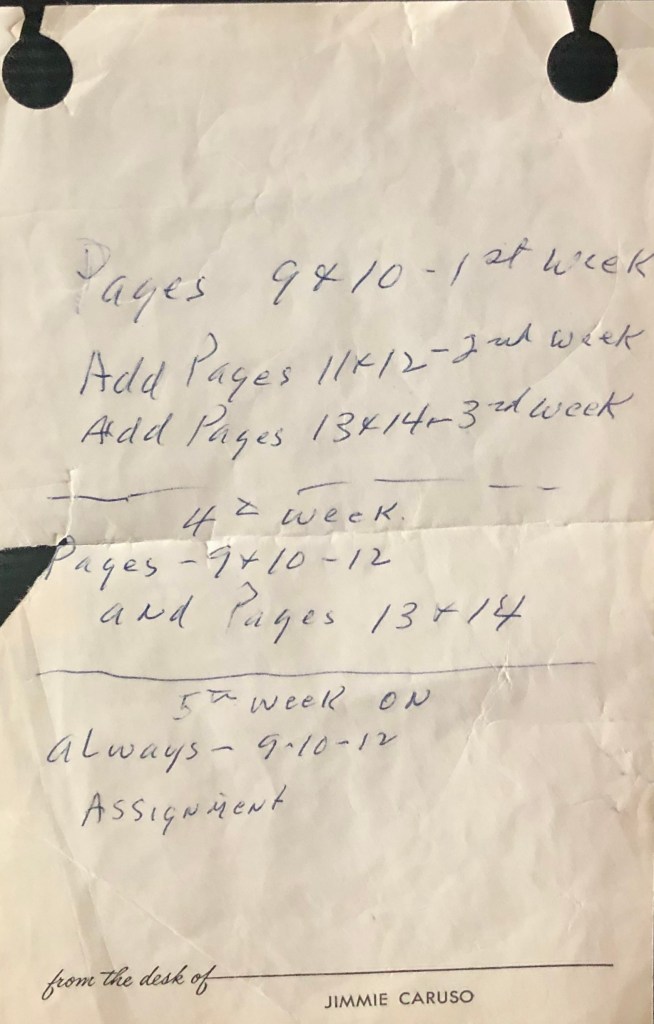 Pages 9 & 10 - 1st week
Add Pages 11 & 12 - 2nd week
Add Pages 13 & 14 - 3rd week
4th week.
Pages - 9 & 10 - 12
and Pages 13 & 14
5th week ON
always - 9-10-12
ASSIGNMENT
from the desk of
JIMMIE CARUSO